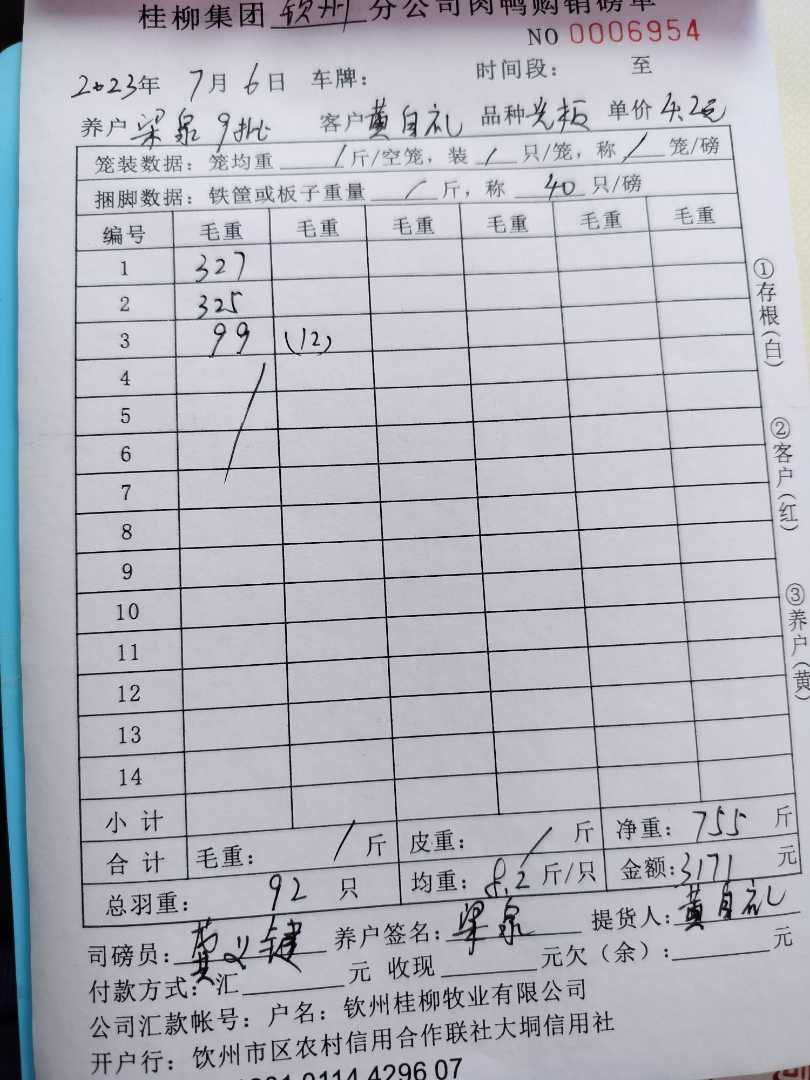 桂柳集团 钦州 分公司肉鸭购销磅单
NO 0006954
2023年 7月6日 车牌： 时间段： 至
养户 梁泉 9批 客户 黄自礼 品种 光板 单价 4.2元
笼装数据：笼均重 / 斤/空笼，装 / 只/笼，称 / 笼/磅
捆脚数据：铁筐或板子重量 / 斤，称 40 只/磅
编号 毛重 毛重 毛重 毛重 毛重 毛重
1 327
2 325
3 99 (12)
4
5
6
7
8
9
10
11
12
13
14
小计
合计 毛重： / 斤 皮重： / 斤 净重：755 斤
总羽重： 92 只 均重：8.2 斤/只 金额：3171 元
司磅员： 养户签名：梁泉 提货人：黄自礼
付款方式：汇 元 收现 元欠（余）： 元
公司汇款帐号：户名：钦州桂柳牧业有限公司
开户行：钦州市区农村信用合作联社大垌信用社
0114 4296 07
①存根（白）
②客户（红）
③养户（黄